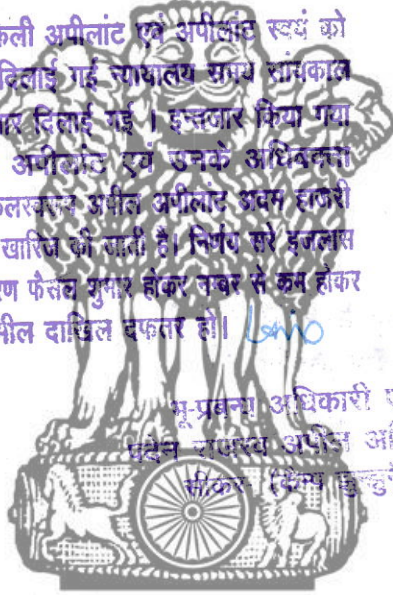 कली अपीलांट एवं अपीलांट स्वयं को
दिलाई गई न्यायालय समय सांयकाल
र दिलाई गई । इन्तजार किया गया
अपीलांट एवं उनके अधिवक्ता
अपील अपीलांट अदम हाजरी
खारिज की जाती है। निर्णय सरे इजलास
रण फैसल शुमार होकर नम्बर से कम होकर
दाखिल दफ्तर हो।
भू-प्रबन्ध अधिकारी
पदेन राजस्व अपील
सीकर (कैम्प